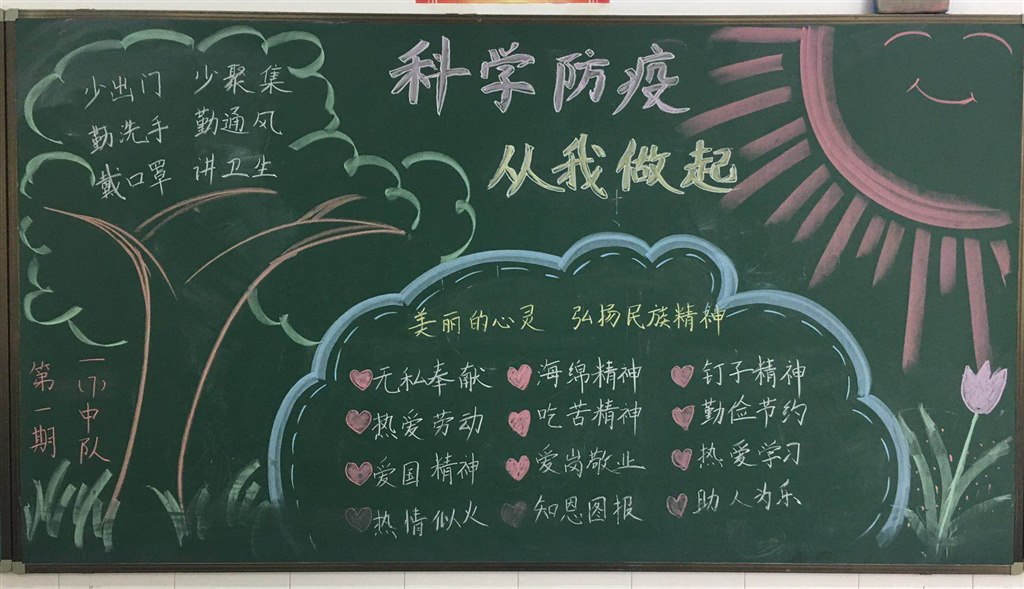 科学防疫
从我做起
少出门 少聚集
勤洗手 勤通风
戴口罩 讲卫生
美丽的心灵 弘扬民族精神
无私奉献 海绵精神 钉子精神
热爱劳动 吃苦精神 勤俭节约
爱国精神 爱岗敬业 热爱学习
热情似火 知恩图报 助人为乐
一(7)中队
第一期